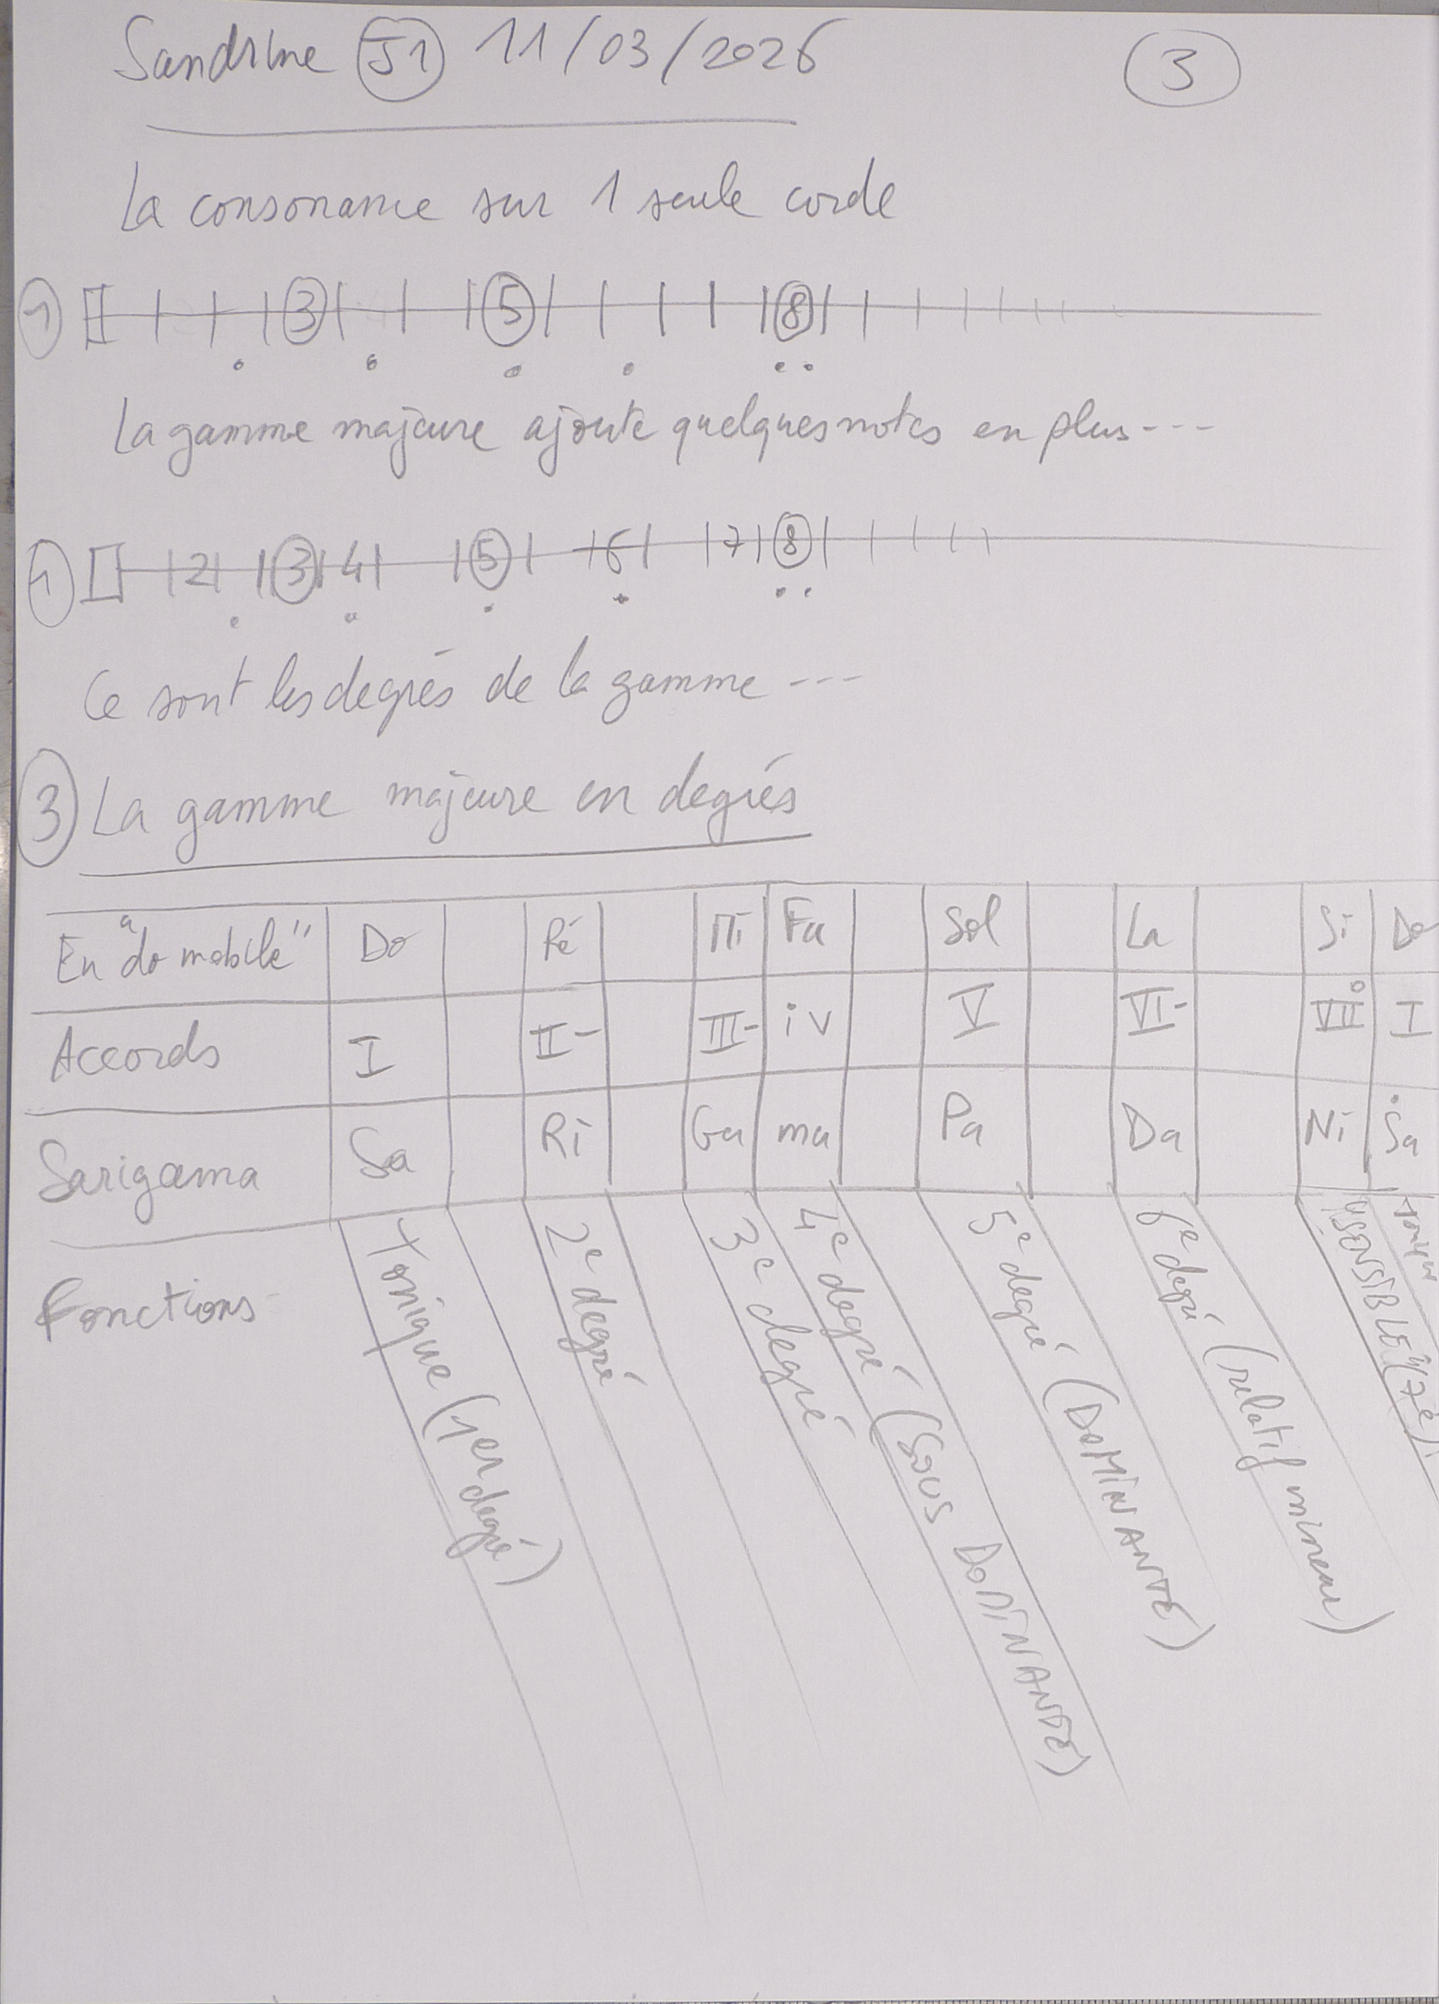 Sandrine J1 11/03/2026 3
La consonance sur 1 seule corde
1 3 5 8
La gamme majeure ajoute quelques notes en plus---
1 2 3 4 5 6 7 8
Ce sont les degrés de la gamme ---
3 La gamme majeure en degrés
En "do mobile" Do Ré Mi Fa Sol La Si Do
Accords I II- III- iv V VI- VII° I
Sarigama Sa Ri Ga ma Pa Da Ni Sa
Fonctions
Tonique (1er degré)
2e degré
3e degré
4e degré (SOUS DOMINANTE)
5e degré (DOMINANTE)
6e degré (relatif mineur)
"SENSIBLE" (7e)